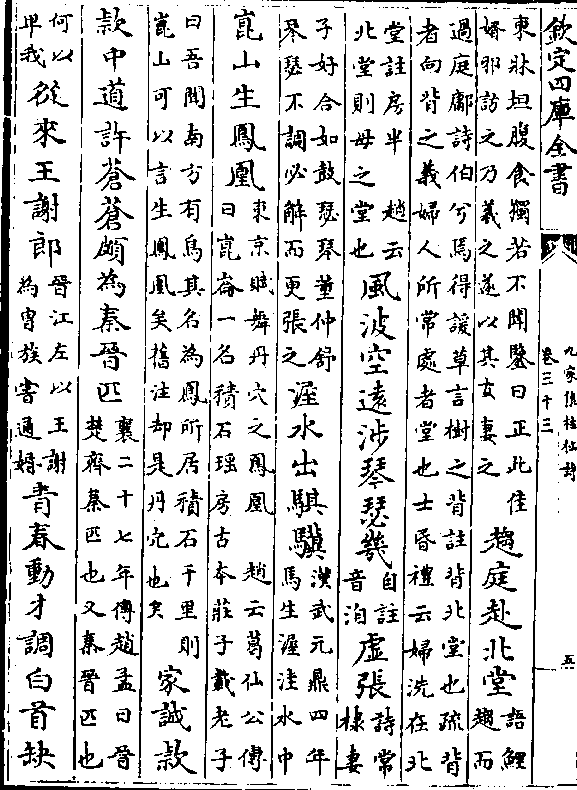 欽定四庫全書
九家集注杜詩
卷三十三
五
東牀坦腹食獨若不聞鑒曰正此佳
婿邪訪之乃羲之遂以其女妻之
趨庭赴北堂
語鯉
趨而
過庭鄘詩伯兮焉得諼草言樹之背註背北堂也疏背
者向背之義婦人所常處者堂也士昏禮云婦洗在北
堂註房半 趙云
北堂則母之堂也
風波空遠涉琴瑟幾
自註
音洎
虛張
詩常
棣妻
子好合如鼓瑟琴董仲舒
琴瑟不調必解而更張之
渥水出騏驥
漢武元鼎四年
馬生渥洼水中
崑山生鳳凰
東京賦舞丹穴之鳳凰 趙云葛仙公傳
曰崑崙一名積石瑤房古本莊子載老子
曰吾聞南方有鳥其名為鳳所居積石千里則
崑山可以言生鳳凰矣舊注却是丹穴也矣
家誠款
款中道許蒼蒼頗為秦晉匹
襄二十七年傳趙孟曰晉
楚齊秦匹也又秦晉匹也
何以
卑我
從來王謝郎
晉江左以王謝
為冑族害通婚
青春動才調白首缺